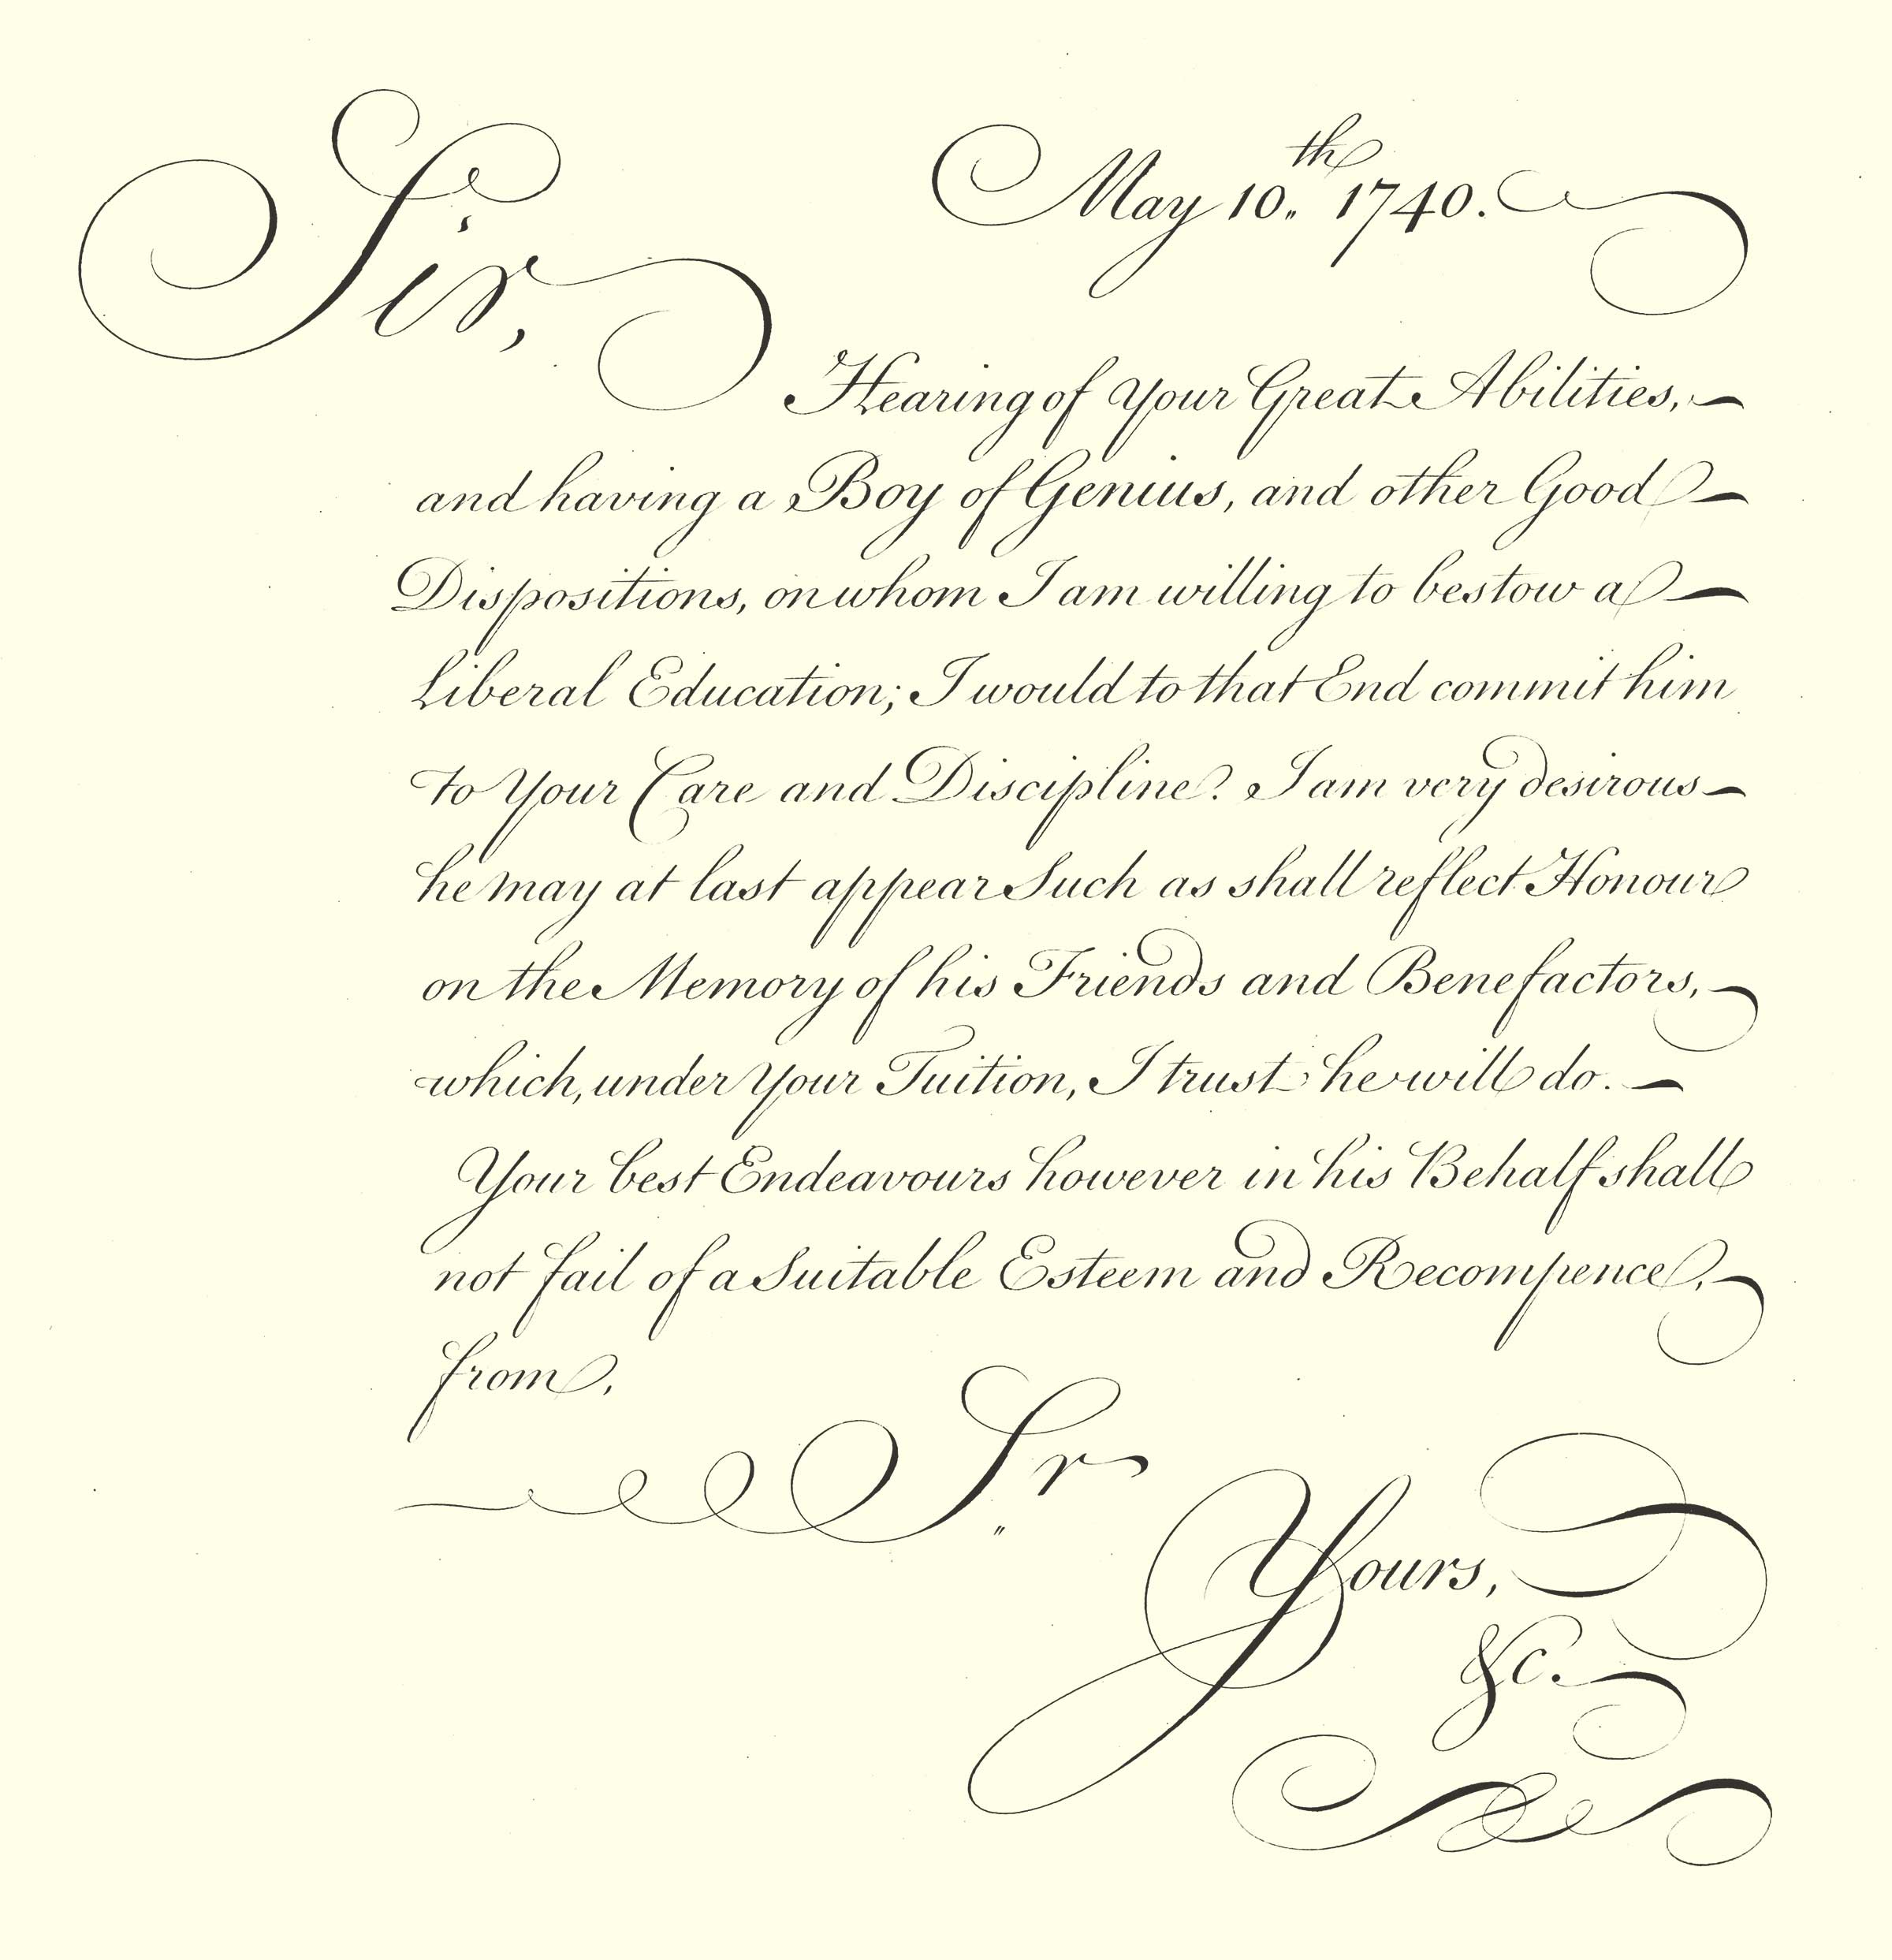 May 10.th 1740.
Sir,
Hearing of Your Great Abilities,
and having a Boy of Genius, and other Good
Dispositions, on whom I am willing to bestow a
Liberal Education; I would to that End commit him
to Your Care and Discipline. I am very desirous
he may at last appear Such as shall reflect Honour
on the Memory of his Friends and Benefactors,
which, under Your Tuition, I trust he will do.
Your best Endeavours however in his Behalf shall
not fail of a Suitable Esteem and Recompence,
from,
Sr
Yours,
&c.